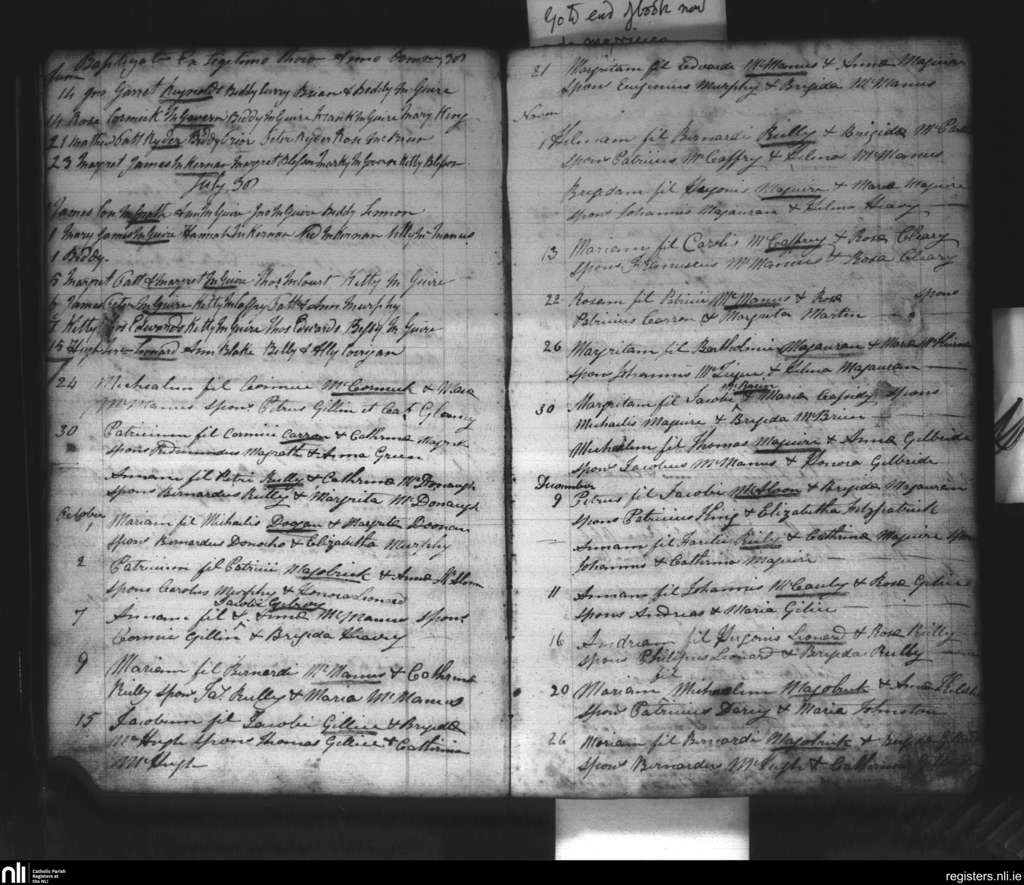 Go to end of book now
Baptizat Ex Legitimo thoro Anno Domini 30
June
14 Jno Garret Reynolds Biddy Curry Brian & Biddy McGuire
14 Rose Cormick McGovern Biddy McGuire Frank McGuire Mary King
21 Mathew Patt Ryder Biddy Prior Peter Ryder Rose McBrien
23 Margret James McKernan Margret Mark McGovern Kitty
July 30
James Con McGrath Ann McGuire Jno McGuire Biddy Lennon
1 Mary James McGuire Hannah McKernan Ned McKernan Kitty McManus
1 Biddy
5 Margret Patt & Margret McGuire Thos McCourt Kitty McGuire
6 James Peter McGuire Kitty McCaffry Patt & Ann Murphy
7 Kitty Thos Edwards Kitty McGuire Thos Edwards Bessy McGuire
15 Hugh Leonard Ann Blake Billy & Ally Corrigan
24 Michaelem fil McCormick & Maria
McManus Spons Petrus Gillin et Cath Glancy
30 Patricium fil Cormici Carran & Cathrina
Spons Redmundus Magrath & Anna Green
Annam fil Petri Reilly & Cathrina McDonaugh
Spons Bernardus Reilly & Margrita McDonaugh
October
1 Mariam fil Michaelis Doogan & Margrita Doonan
Spons Bernardus Donocho & Elizabetha Murphy
2 Patricium fil Patricii Magolrick & Anna McSloon
Spons Carolus Murphy & Honora Leonard
Jacobi Gilroy
7 Annam fil & Anna McManus Spons
Connie Gillin & Brigida Heavy
9 Mariam fil Bernardi McManus & Cathrina
Reilly Spons Jas Reilly & Maria McManus
15 Jacobum fil Jacobi Gillin & Brigida
McHugh Spons Thomas Gillin & Cathrina
McHugh
21 Margritam fil Edwardi McManus & Anna Magauran
Spons Eugenius Murphy & Brigida McManus
Novem
1 Helenam fil Bernardi Reilly & Brigida
Spons Patricius McCaffry & Helena McManus
Brigidam fil Hugonis Maguire & Maria Maguire
Spons Johannis Magauran & Helena Heavy
13 Mariam fil Carolis McCaffrey & Rosa Cleary
Spons Franciscus McManus & Rosa Cleary
22 Rosam fil Patricii McManus & Rosa Spons
Patricius Carron & Margrita Martin
26 Margritam fil Bartholmie Magauran & Maria
Spons Johannis & Helena Magauran
McBrien
30 Margritam fil Jacobi & Maria Cassidy Spons
Michaelis Maguire & Brigida McBrien
Michaelem fil Thomas Maguire & Anna Gilbride
Spons Jacobus McManus & Honora Gilbride
December
9 Petrus fil Jacobi McSloon & Brigida Magauran
Spons Patricius King & Elizabetha Fitzpatrick
Annam fil Reilly & Cathrina Maguire Spons
Johannis & Cathrina Maguire
11 Annam fil Johannis McCauly & Rosa
Spons Andreas & Maria
16 Andream fil Hugonis Leonard & Rosa Reilly
Spons Philipus Leonard & Brigida Reilly
fil
20 Mariam Michaelem Magolrick & Anna
Spons Patricius Darcy & Maria Johnston
26 Mariam fil Bernardi Magolrick & Brigida
Spons Bernardus McHugh & Catherina
nli Catholic Parish Registers at the NLI
registers.nli.ie